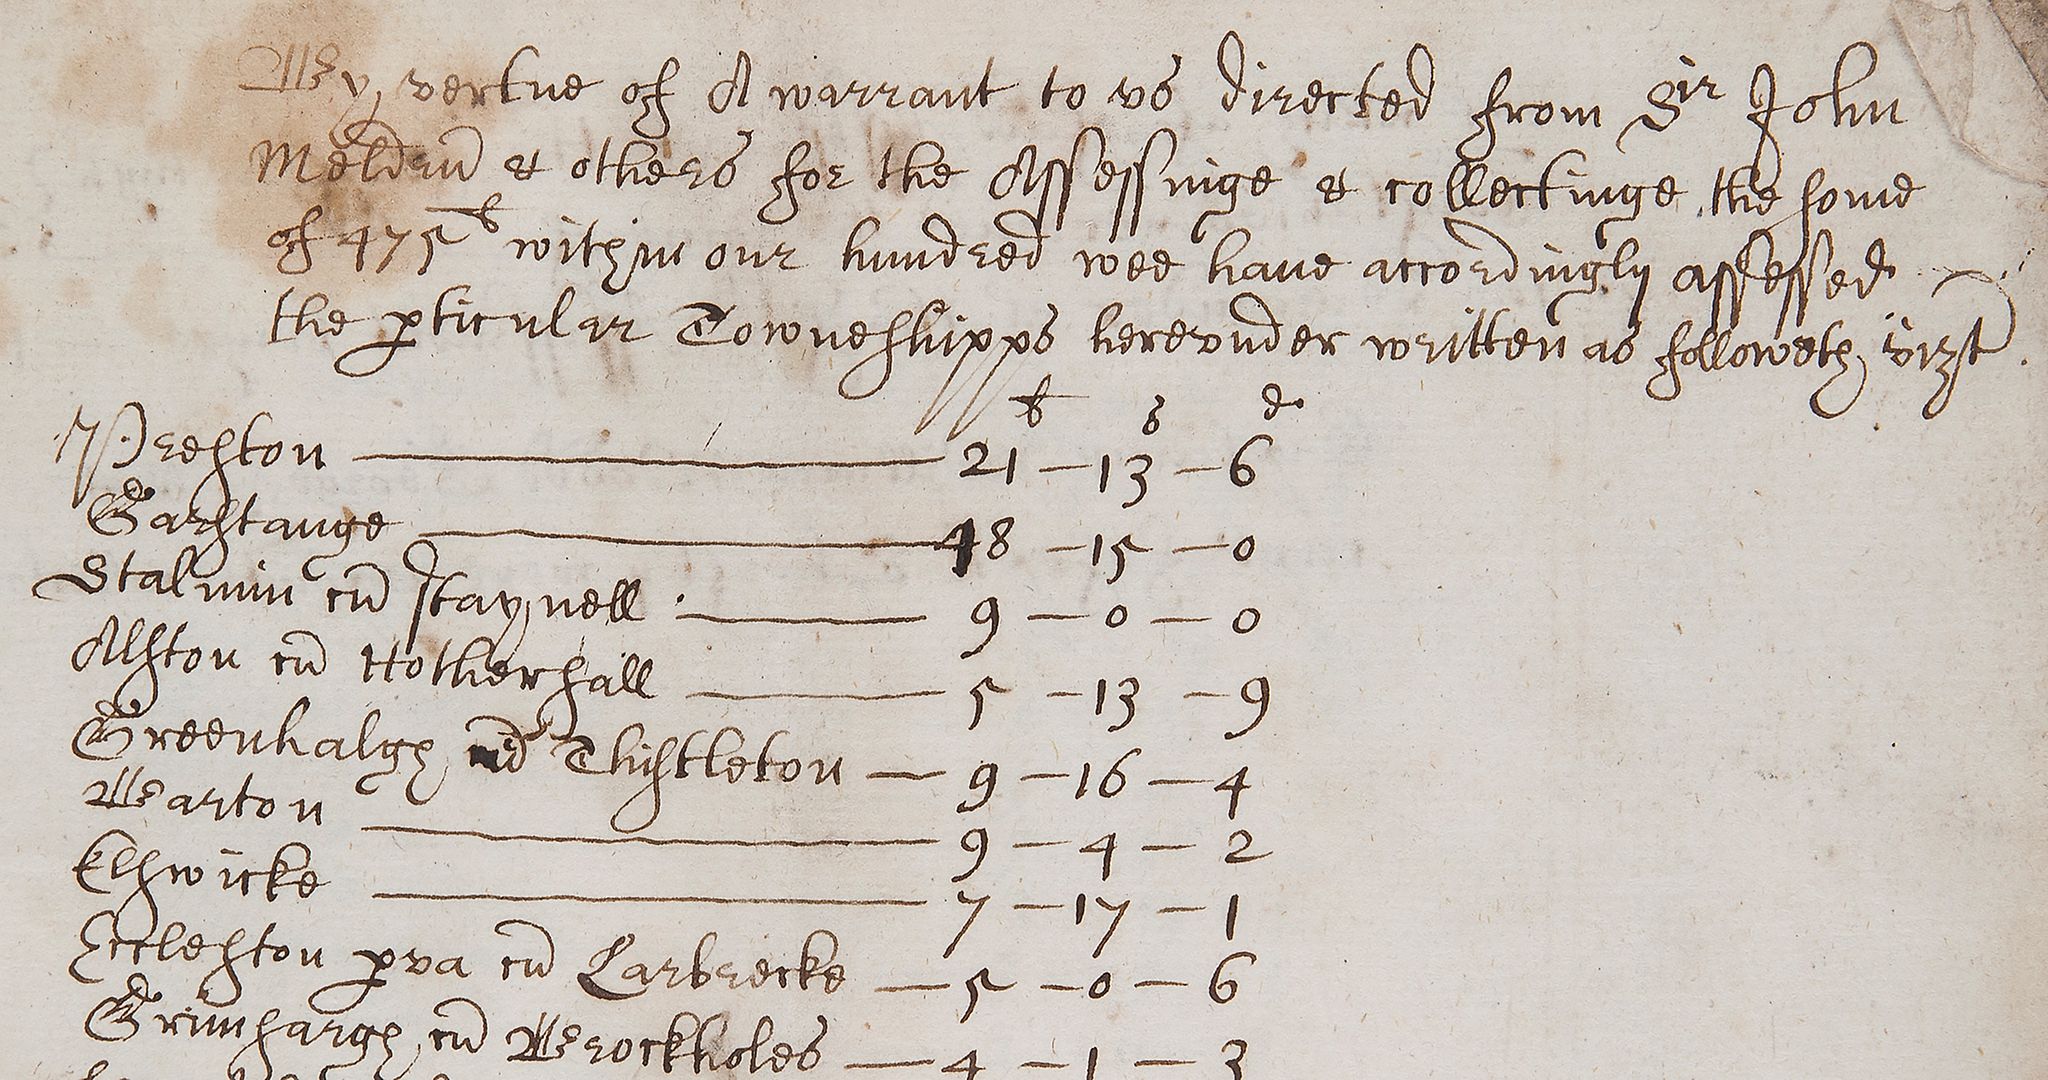 By vertue of A warrant to vs directed from Sir John
Meldrū & others for the Assessinge & collectinge the some
of 475li within our hundred wee have accordingly assessed
the pticular Towneshipps herevnder written as followeth vizt.
li s d
Preston 21 – 13 – 6
Garstange 48 – 15 – 0
Stalmin cū staynell 9 – 0 – 0
Alston cū Hothersall 5 – 13 – 9
Greenhalgh cū Thistleton 9 – 16 – 4
Warton 9 – 4 – 2
Elswicke 7 – 17 – 1
Eccleston pva cū Larbrecke 5 – 0 – 6
Grimsargh cū Brockholes 4 – 1 – 3